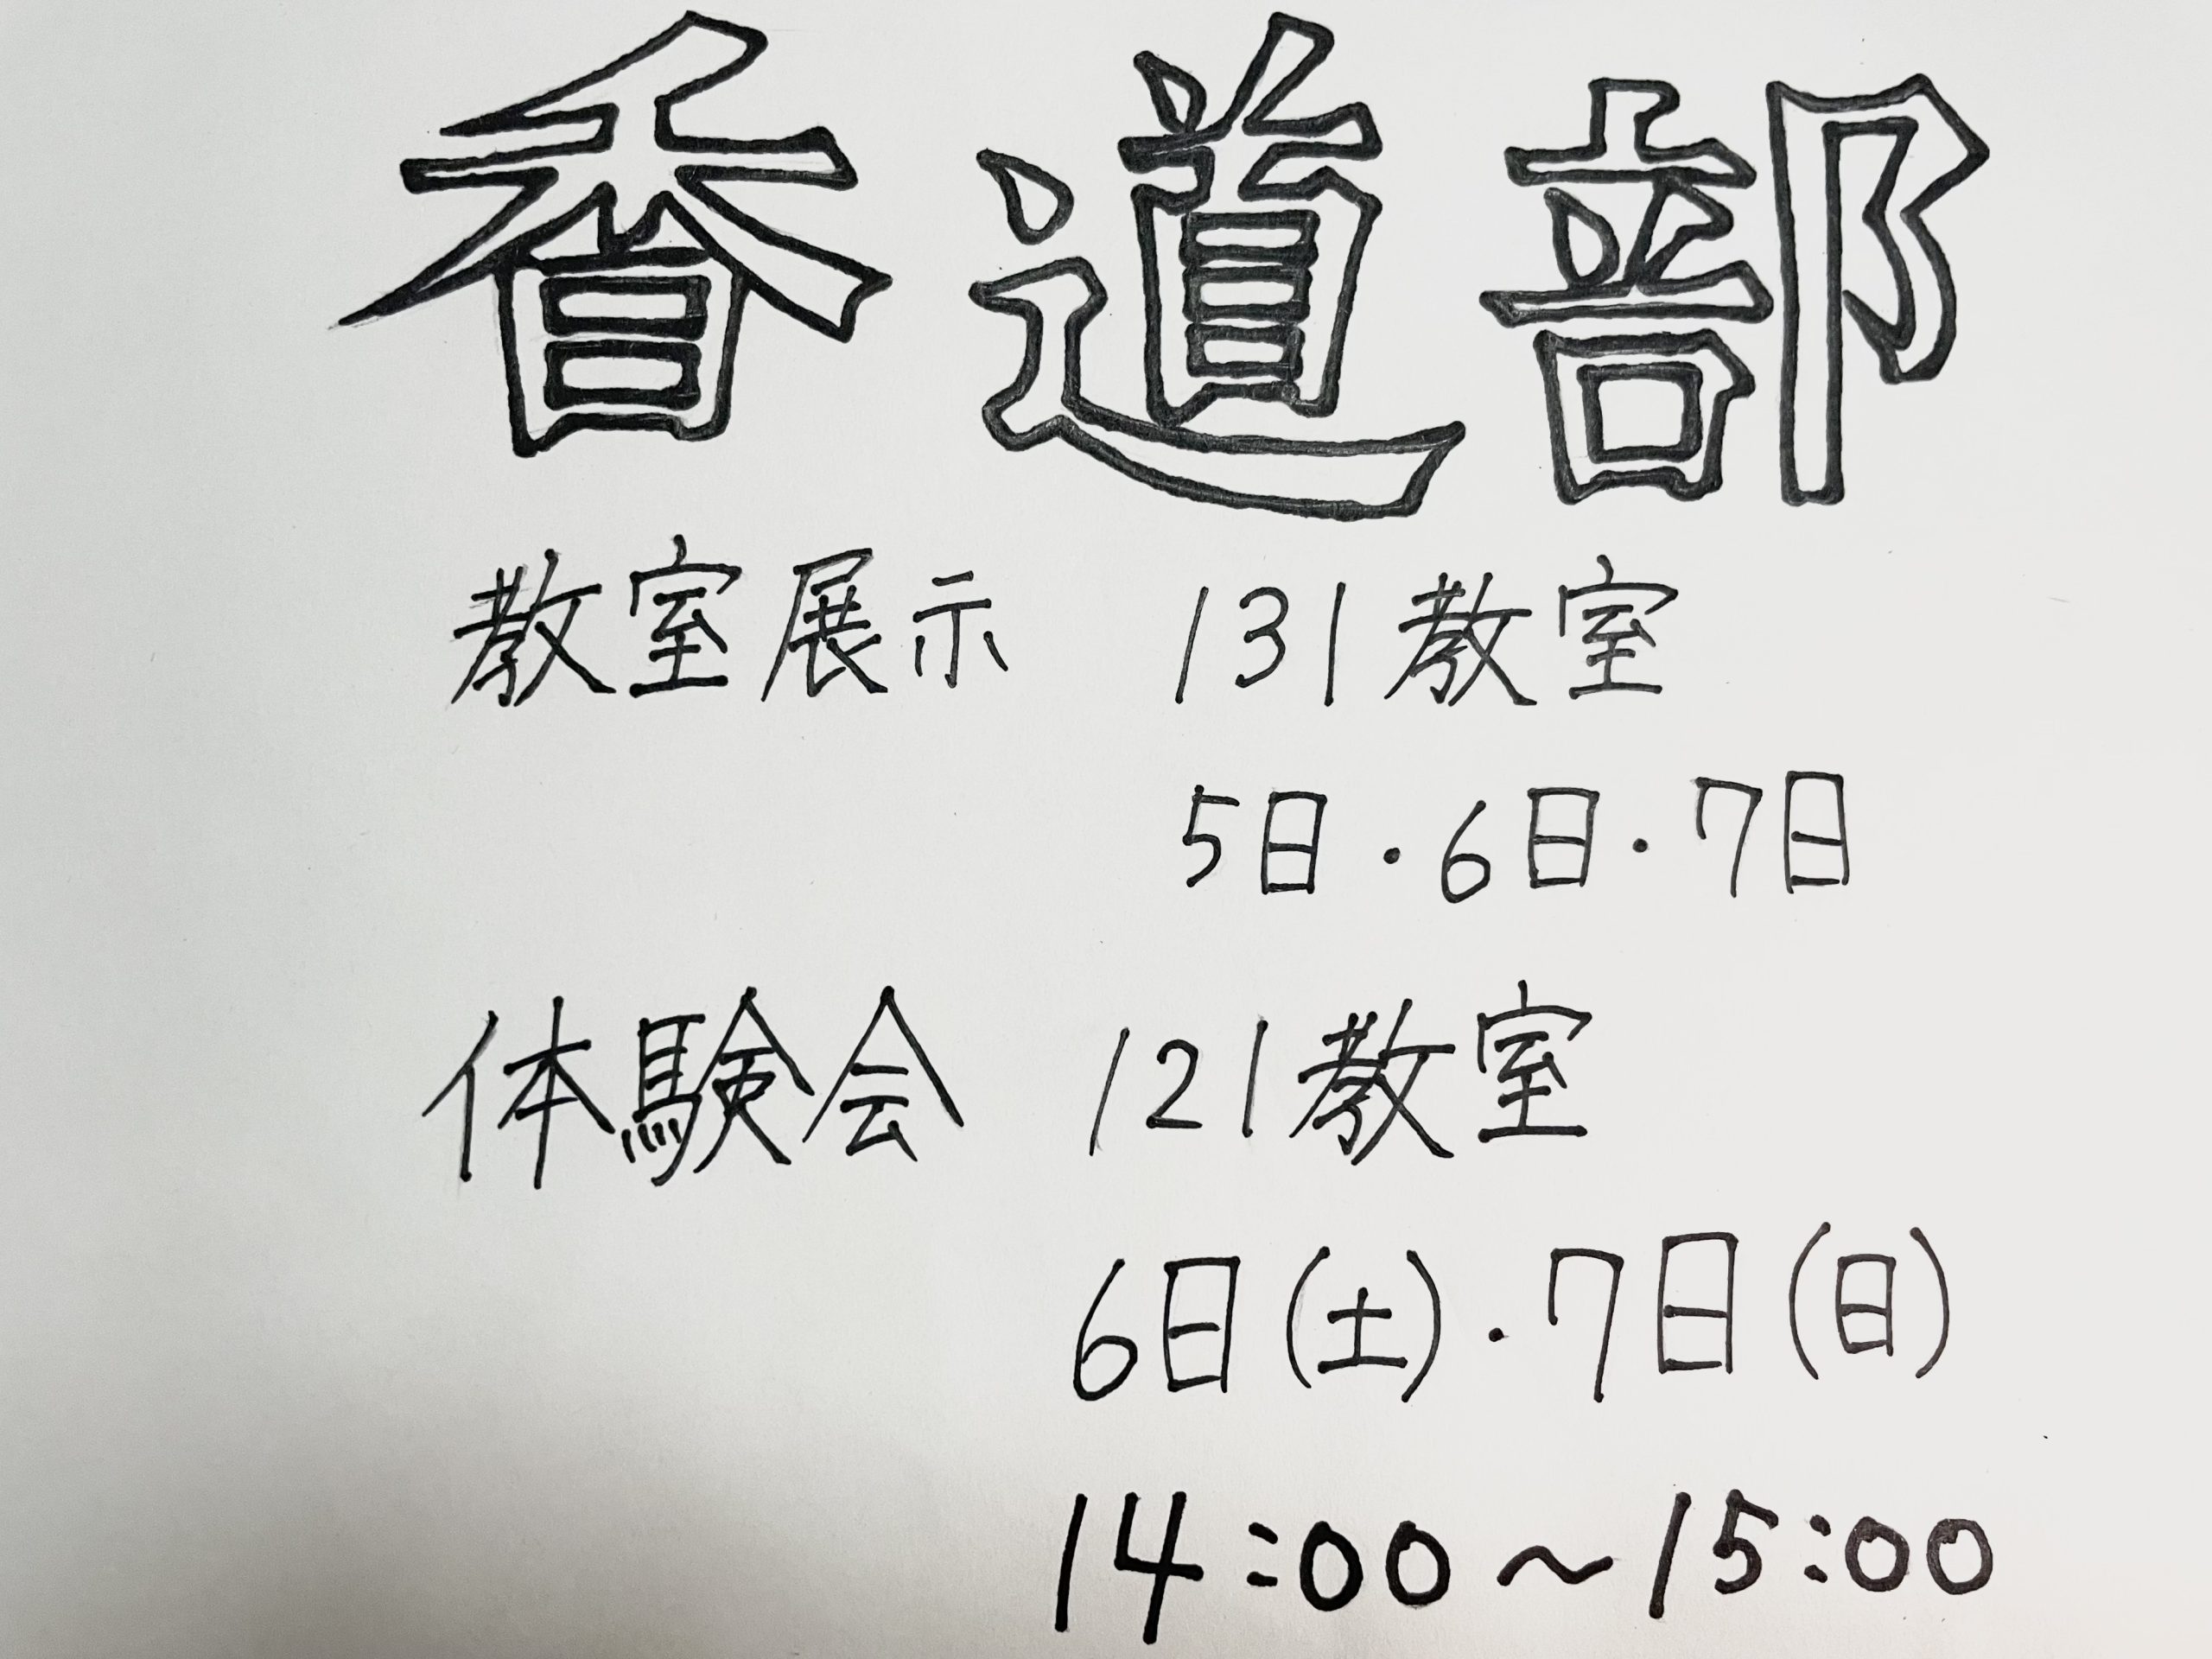 香道部
教室展示 131教室
5日・6日・7日
体験会 121教室
6日(土)・7日(日)
14:00～15:00